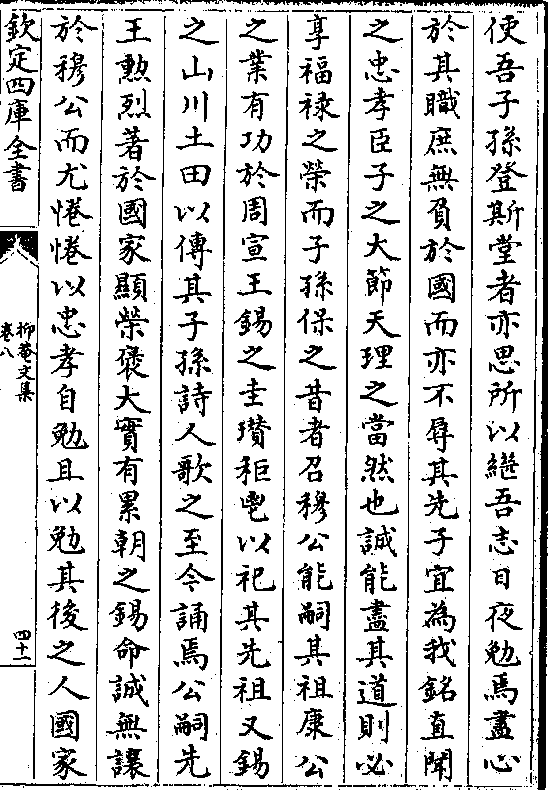 使吾子孫登斯堂者亦思所以繼吾志日夜勉焉盡心
於其職庶無負於國而亦不辱其先子宜為我銘直聞
之忠孝臣子之大節天理之當然也誠能盡其道則必
享福禄之榮而子孫保之昔者召穆公能嗣其祖康公
之業有功於周宣王錫之圭瓚秬鬯以祀其先祖又錫
之山川土田以傳其子孫詩人歌之至今誦焉公嗣先
王勲烈著於國家顯榮褒大實有累朝之錫命誠無讓
於穆公而尤惓惓以忠孝自勉且以勉其後之人國家
欽定四庫全書
抑菴文集
卷八
四十一